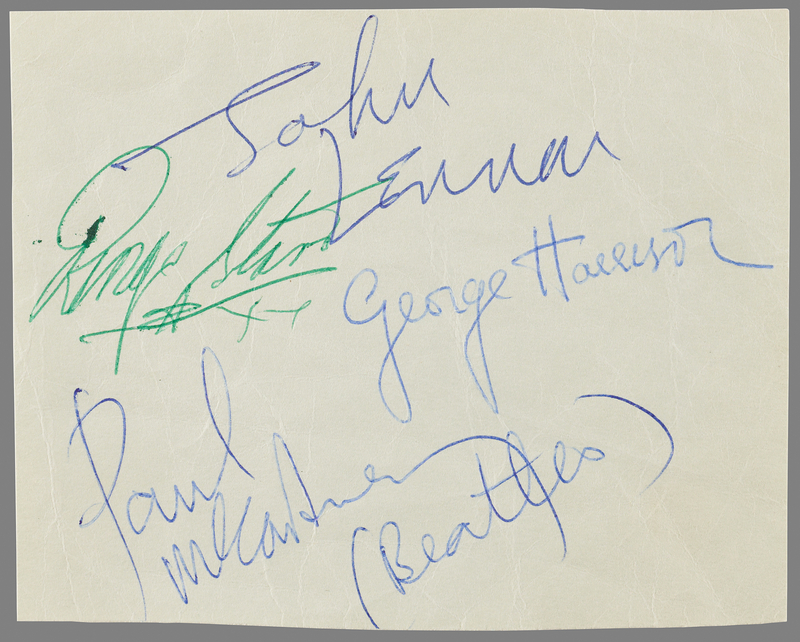 John
Lennon
Ringo Starr
xx
George Harrison
Paul
McCartney
(Beatles)